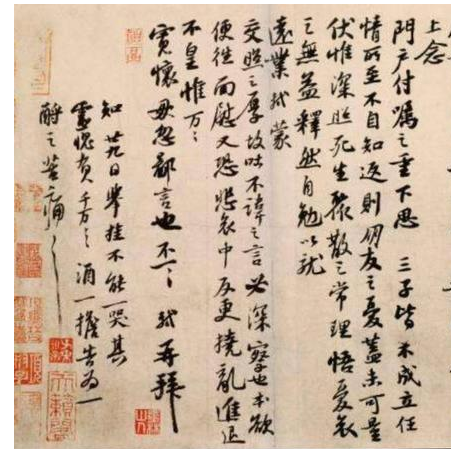 上念
門戶付囑之重下思 三子皆不成立任
情所至不自知返則朋友之憂蓋未可量
伏惟深照死生聚散之常理悟憂哀
之無益釋然自勉以就
遠業軾蒙
交照之厚故吐不諱之言必深察也本欲
便往面慰又恐悲哀中反更撓亂進退
不皇惟万々
寬懷毋忽鄙言也不一々 軾再拜
知廿九日舉挂不能一哭其
靈愧負千万々 酒一擔告為一
酹之苦痛々